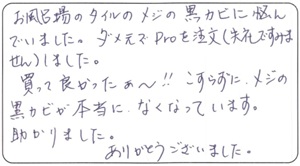 お風呂場のタイルのメジの黒カビに悩ん
でいました。ダメ元でProを注文(失礼ですみま
せん)しました。
買って良かったぁ〜!!こすらずに、メジの
黒カビが本当に、なくなっています。
助かりました。
ありがとうございました。